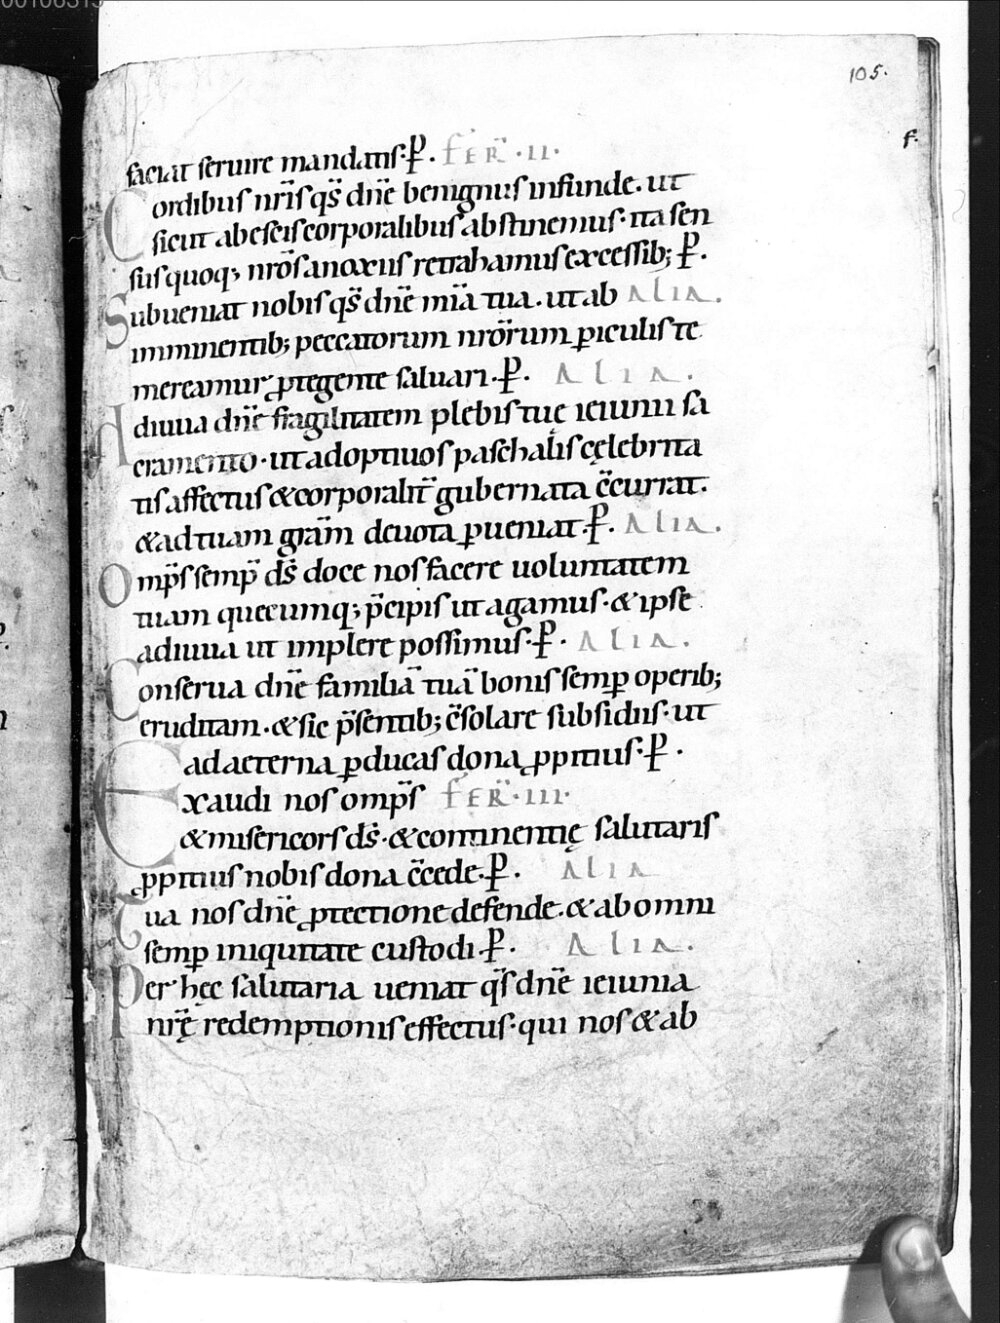 00106315
105.
f.
faciat seruire mandatis·P̄. FER̄·II·
Cordibus nr̄is qs̄ dn̄e benignus infunde. ut
sicut ab escis corporalibus abstinemus· ita sen
sus quoq; nr̄os a noxiis retrahamus excessib; P̄.
Subueniat nobis qs̄ dn̄e mīa tua. ut ab ALIA.
imminentib; peccatorum nr̄orum ꝑiculis te
mereamur ꝓtegente saluari.P̄. ALIA.
Adiuua dn̄e fragilitatem plebis tuę ieiunii sa
cramento· ut adoptiuos paschalis cęlebrita
tis affectus & corporalit̄ gubernata c̄currat.
& ad tuam gr̄am deuota ꝑueniat.P̄. ALIA.
Omp̄s semp̄ ds̄ doce nos facere uoluntatem
tuam quecumq; p̄cipis ut agamus·& ipse
adiuua ut implere possimus·P̄. ALIA.
Conserua dn̄e familiā tuā bonis semꝑ operib;
eruditam.& sic p̄sentib; c̄solare subsidiis·ut
ad aeterna ꝑducas dona ꝓpitius·P̄.
Exaudi nos omp̄s FER̄·III·
& misericors ds̄·& continentię salutaris
ꝓpitius nobis dona c̄cede.P̄. ALIA
Tua nos dn̄e ꝓtectione defende.& ab omni
semꝑ iniquitate custodi.P̄. ALIA.
Per hec salutaria ueniat qs̄ dn̄e ieiunia
nr̄ę redemptionis effectus·qui nos & ab